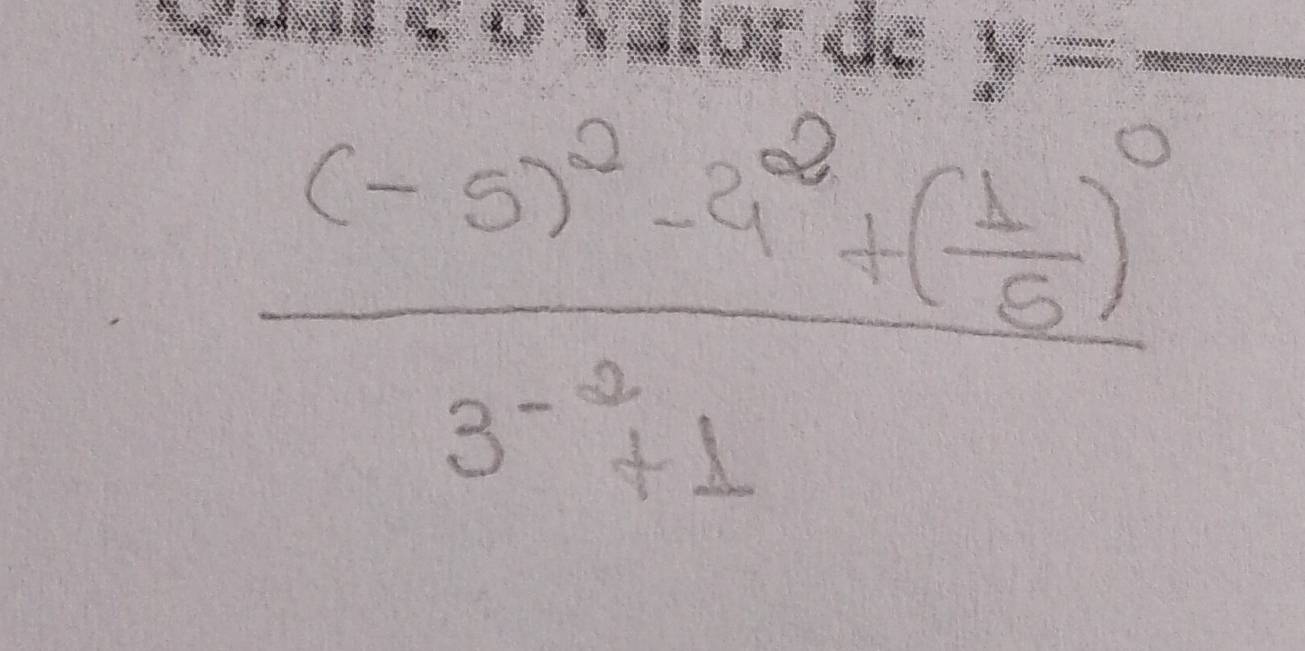 Qual é o valor de y =
(-5)² - 4² + (1/5)⁰
3⁻² + 1